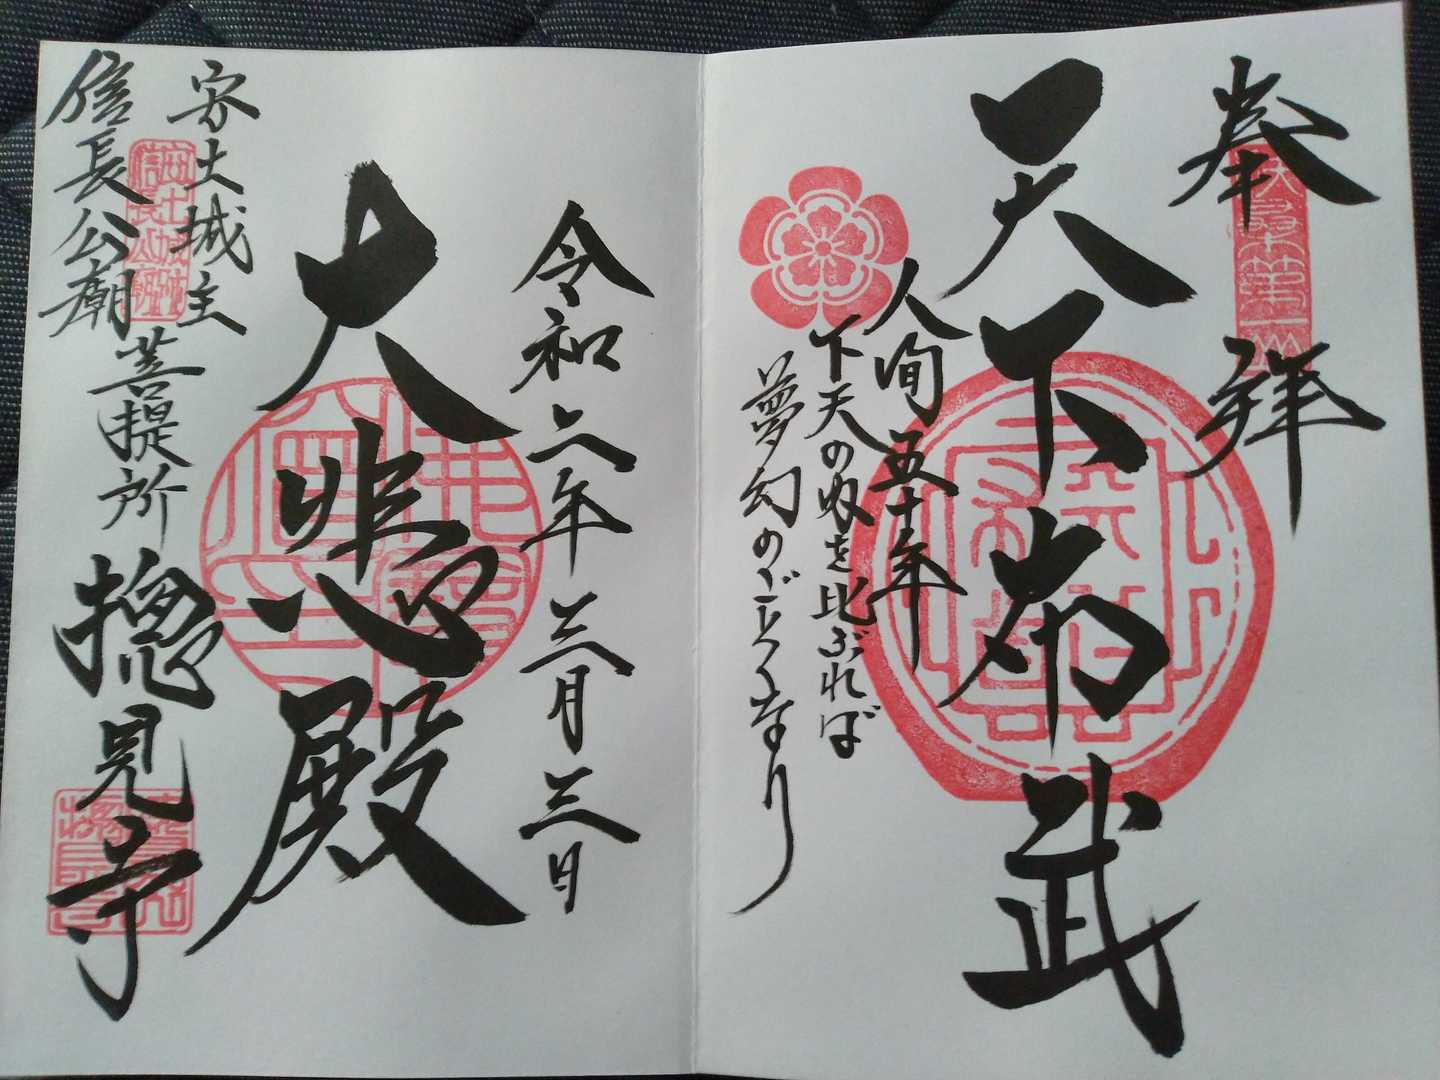 奉拝
天下布武
人間五十年
下天の内を比ぶれば
夢幻のごとくなり
令和二年三月三日
大悲殿
安土城主
信長公廟
菩提所
摠見寺